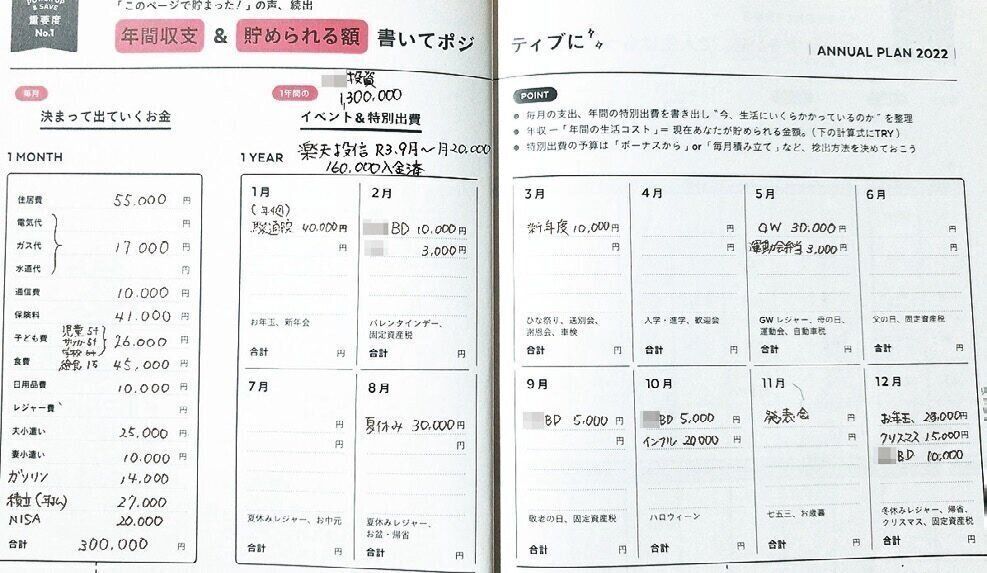 & SAVE
重要度
No.1
「このページで貯まった！」の声、続出
年間収支 & 貯められる額 書いてポジティブに
ANNUAL PLAN 2022
毎月
決まって出ていくお金
1 MONTH
住居費 55.000 円
電気代 円
ガス代 17.000 円
水道代 円
通信費 10.000 円
保険料 41.000 円
子ども費 26.000 円
食費 45,000 円
日用品費 10.000 円
レジャー費 円
夫小遣い 25.000 円
妻小遣い 10.000 円
ガソリン 14.000
積立 27.000
NISA 20.000
合計 300,000 円
投資
1,300,000
1年間の
イベント＆特別出費
1 YEAR
楽天投信 R3.9月〜月20,000
160,000入金済
1月
40.000円
円
お年玉、新年会
合計 円
2月
BD 10,000円
3,000円
バレンタインデー、
固定資産税
合計 円
7月
円
円
夏休みレジャー、お中元
合計 円
8月
夏休み 30,000円
円
夏休みレジャー、
お盆・帰省
合計 円
POINT
毎月の支出、年間の特別出費を書き出し“今、生活にいくらかかっているのか”を整理
年収ー「年間の生活コスト」＝ 現在あなたが貯められる金額。（下の計算式にTRY）
特別出費の予算は「ボーナスから」or「毎月積み立て」など、捻出方法を決めておこう
3月
新年度 10,000円
円
ひな祭り、送別会、
謝恩会、車検
合計 円
4月
円
円
入学・進学、歓迎会
合計 円
5月
GW 30.000円
運動会弁当 3,000円
GWレジャー、母の日、
運動会、自動車税
合計 円
6月
円
円
父の日、固定資産税
合計 円
9月
BD 5,000円
円
敬老の日、固定資産税
合計 円
10月
BD 5,000円
インフル 20,000円
ハロウィーン
合計 円
11月
発表会 円
円
七五三、お歳暮
合計 円
12月
お年玉、円
クリスマス 15,000円
BD 10,000
冬休みレジャー、帰省、
クリスマス、固定資産税
合計 円